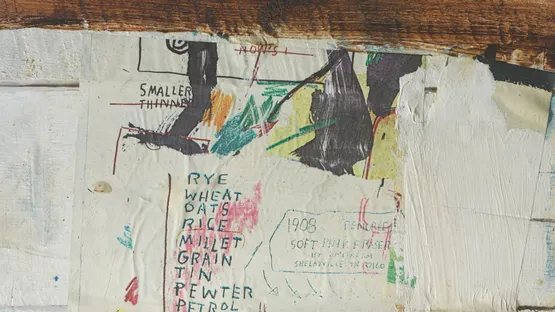 SMALLER
THINNER
RYE
WHEAT
OATS
RICE
MILLET
GRAIN
TIN
PEWTER
PETROL
1908
SOFT PINK ERASER